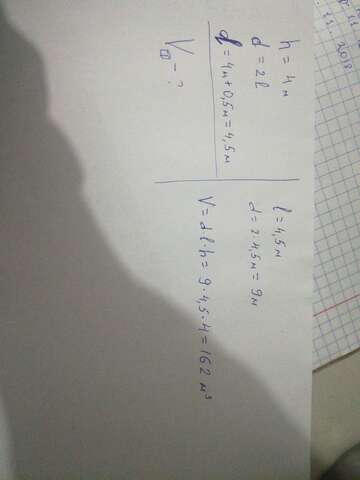 h = 4 м
d = 2l
l = 4м + 0,5м = 4,5м
V - ?
l = 4,5 м
d = 2 · 4,5м = 9м
V = d l · h = 9 · 4,5 · 4 = 162 м³
2018